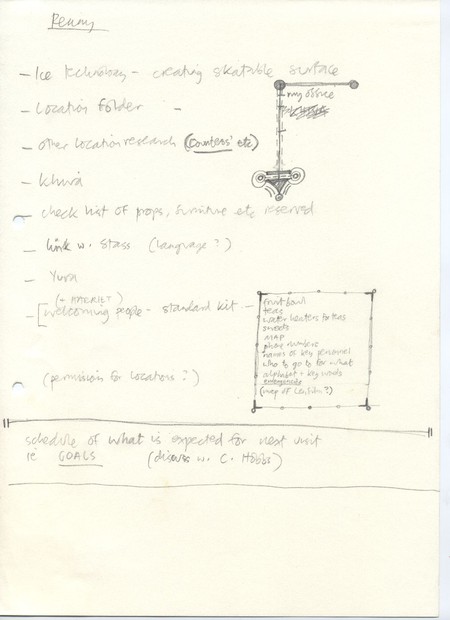 Renny
- Ice technology - creating skatable surface
my office
- Location folder -
- other location research (counters' etc)
- Khiva
- check list of props, furniture etc reserved
- link w. Stass (language?)
- Yura
(+ HARRIET)
- [welcoming people - standard kit -
fruit bowl
teas
water heaters for teas
sweets
MAP
phone numbers
names of key personnel
who to go to for what
alphabet + key words
(map of Lenfilm?)
(permission for locations?)
schedule of what is expected for next visit
ie GOALS (discuss w. C. Hobbs)